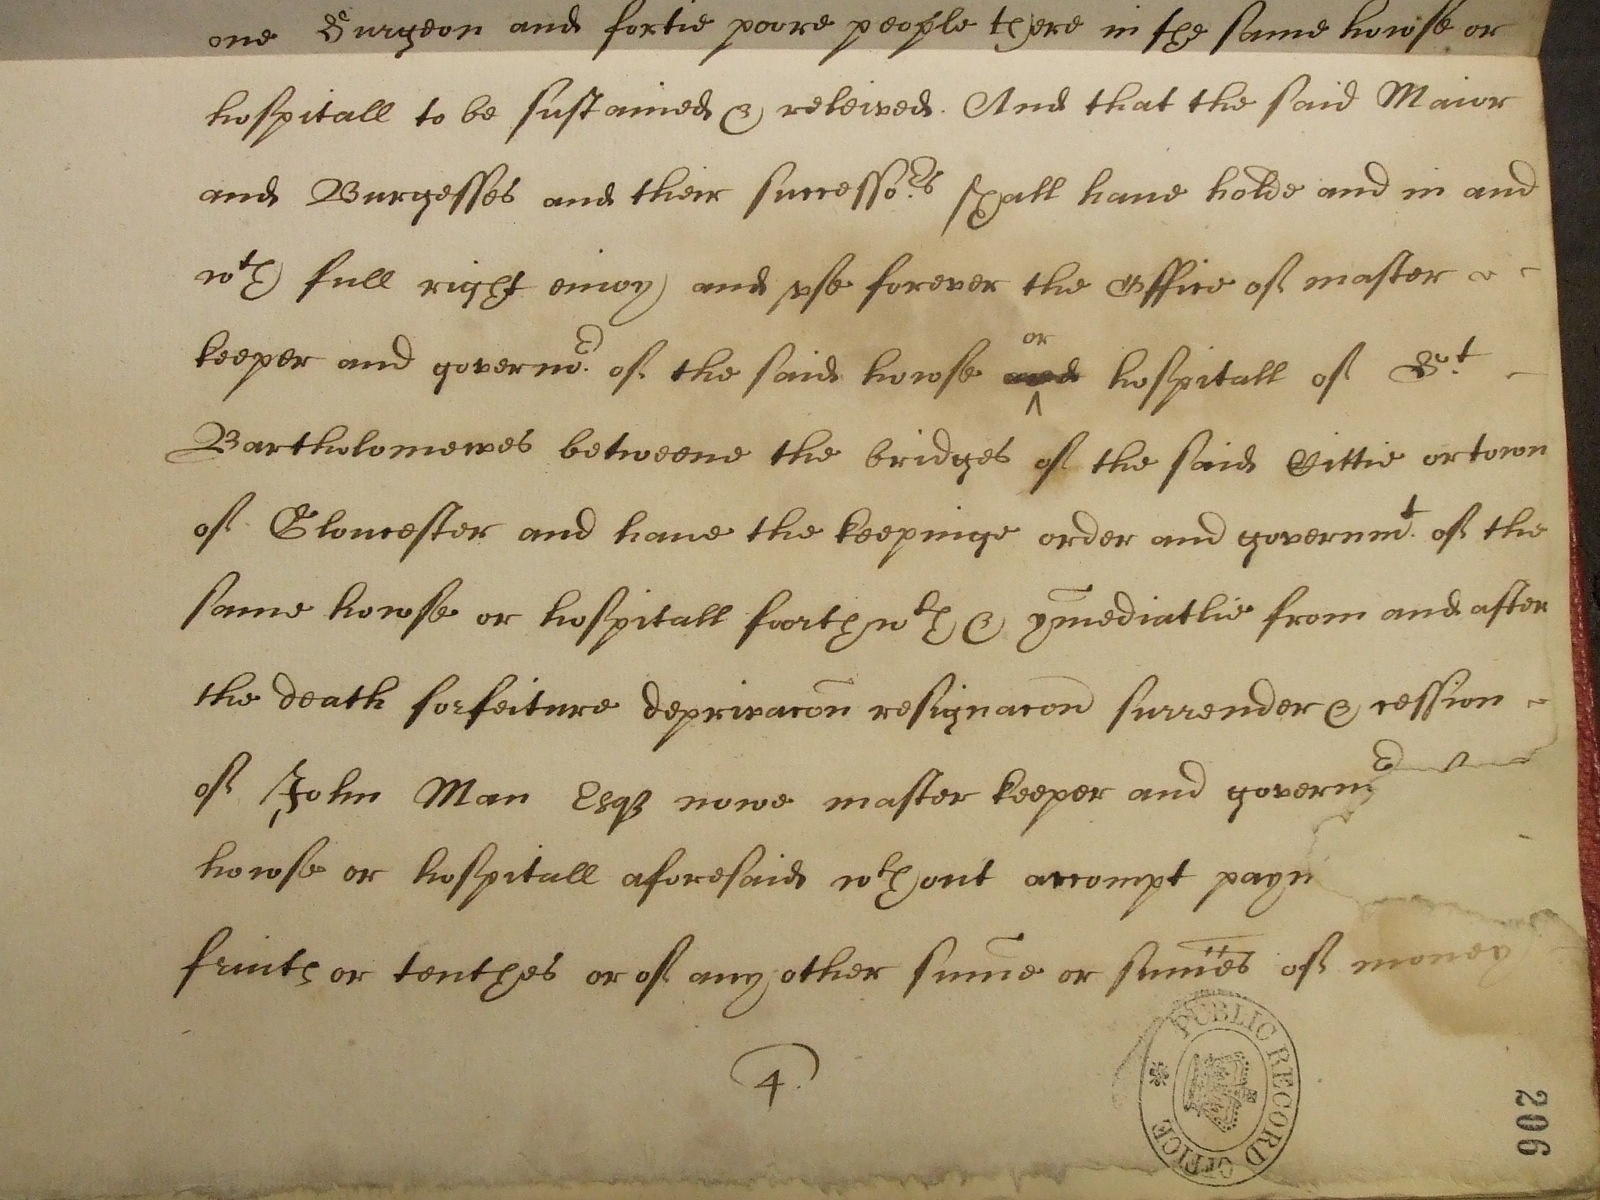 one Surgeon and fortie poore people there in the same howse or
hospitall to be sustained & releived. And that the said Maior
and Burgesses and their successo.rs shall haue holde and in and
wth full right enioy and vse forever the Office of master
keeper and governo.r of the said howse or hospitall of St
Bartholomewes betweene the bridges of the said Cittie or town
of Gloucester and haue the keepinge order and governmt. of the
same howse or hospitall foorthwth & ymediatlie from and after
the death forfeiture deprivacon resignacon surrender & cession
of John Man Esq nowe master keeper and govern
howse or hospitall aforesaid wthout accompt payn
fruits or tenthes or of any other sume or sumes of money
4.
PUBLIC RECORD OFFICE
206